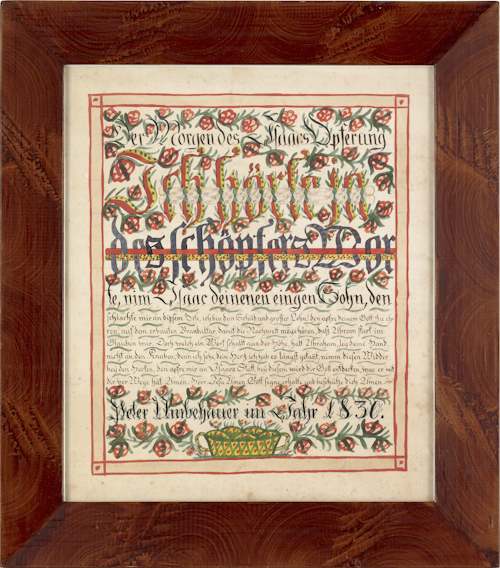 Der Morgen des Isaacs Opferung
Ich hörte in
des schöpfers Wor
te, nim Isaac deinenen eingen Sohn, den
schlachte mir an diesem Orte, ich bin dein Schild und großer Lohn, den opfre deinem Gott zu eh
ren, auf dem erbauten Brandaltar, damit die Nachwelt möge hören, daß Abram stark im
Glauben war. Doch welch ein Wort schallt aus der Höh, halt Abraham, leg deine Hand
nicht an den Knaben, denn ich seh, dein Herz ich hab es längst gekant, nimm diesen Widder
bey den Hecken, den opfre mir an Isaacs Statt, bey diesem wird dir Gott entdecken, was er mit
dir vor Wege hat. Amen. Herr Jesu Amen. Gott segne erhalte und beschütze dich Amen
Peter Umbehauer im Jahr 1830.